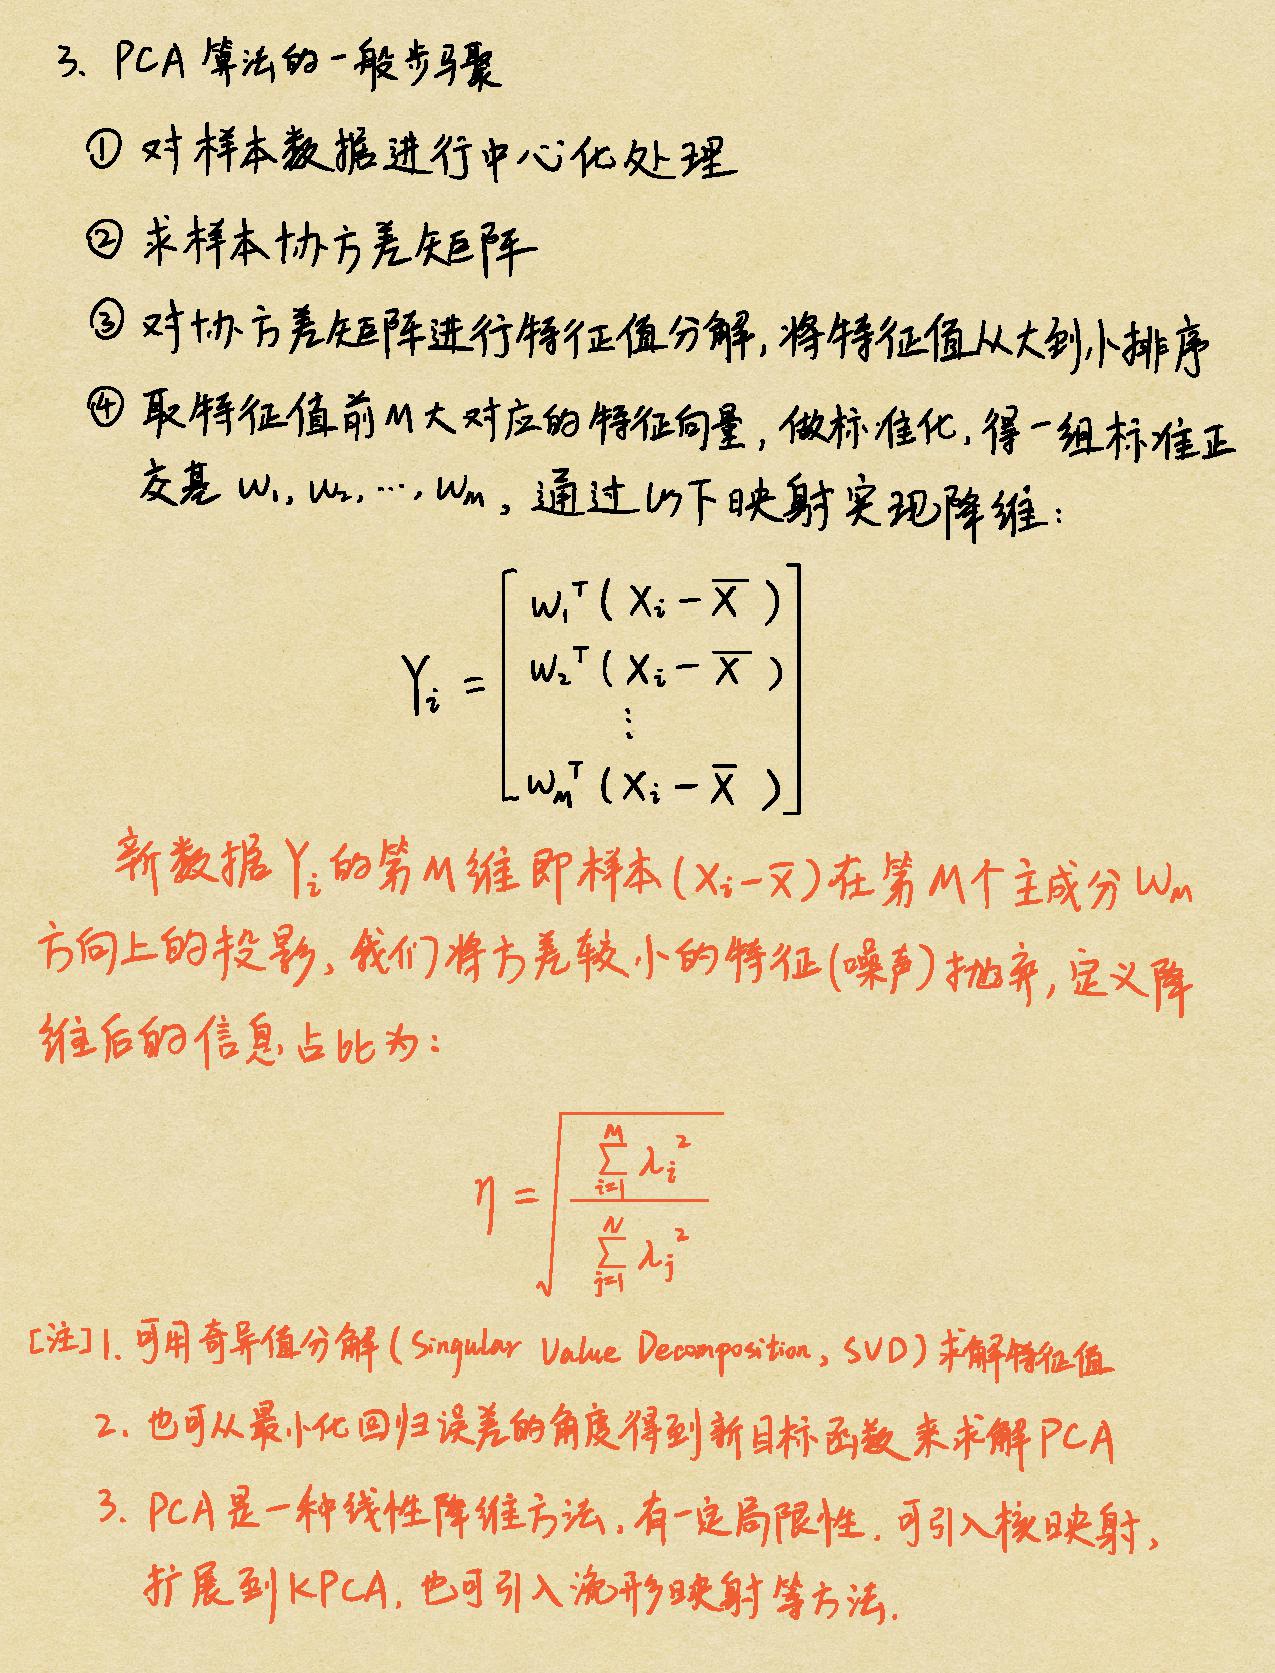 3. PCA 算法的一般步骤
① 对样本数据进行中心化处理
② 求样本协方差矩阵
③ 对协方差矩阵进行特征值分解, 将特征值从大到小排序
④ 取特征值前M大对应的特征向量, 做标准化, 得一组标准正
交基 W₁, W₂, …, W_M, 通过以下映射实现降维:
W₁ᵀ(Xᵢ - X̅)
W₂ᵀ(Xᵢ - X̅)
Yᵢ =
⋮
W_Mᵀ(Xᵢ - X̅)
新数据Yᵢ的第M维即样本(Xᵢ-X̅)在第M个主成分W_M
方向上的投影, 我们将方差较小的特征(噪声)抛弃, 定义降
维后的信息占比为:
η = √( ∑_{i=1}^{M} λᵢ² / ∑_{j=1}^{N} λⱼ² )
[注] 1. 可用奇异值分解(Singular Value Decomposition, SVD)求解特征值
2. 也可从最小化回归误差的角度得到新目标函数来求解PCA
3. PCA是一种线性降维方法, 有一定局限性. 可引入核映射,
扩展到KPCA, 也可引入流形映射等方法.